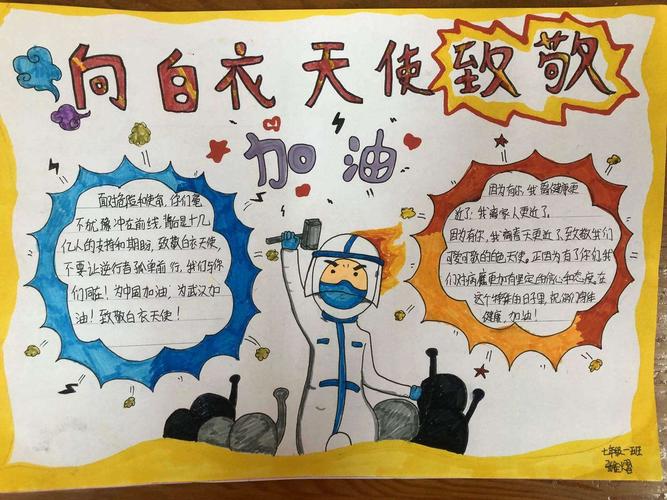 向白衣天使致敬
加油
面对危险和使命,你们毫
不犹豫冲在前线,背后是十几
亿人的支持和期盼,致敬白衣天使,
不要让逆行者孤单前行,我们与你
们同在!为中国加油,为武汉加
油!致敬白衣天使!
因为有你,我离健康更
近了,我离家人更近了,
因为有你,我离春天更近了,致敬我们
可爱的白色天使。正因为有了你们我
们对病魔更加有坚定的信心和态度。在
这个特殊的日子里,祝你们身体
健康,加油!
七年级一班